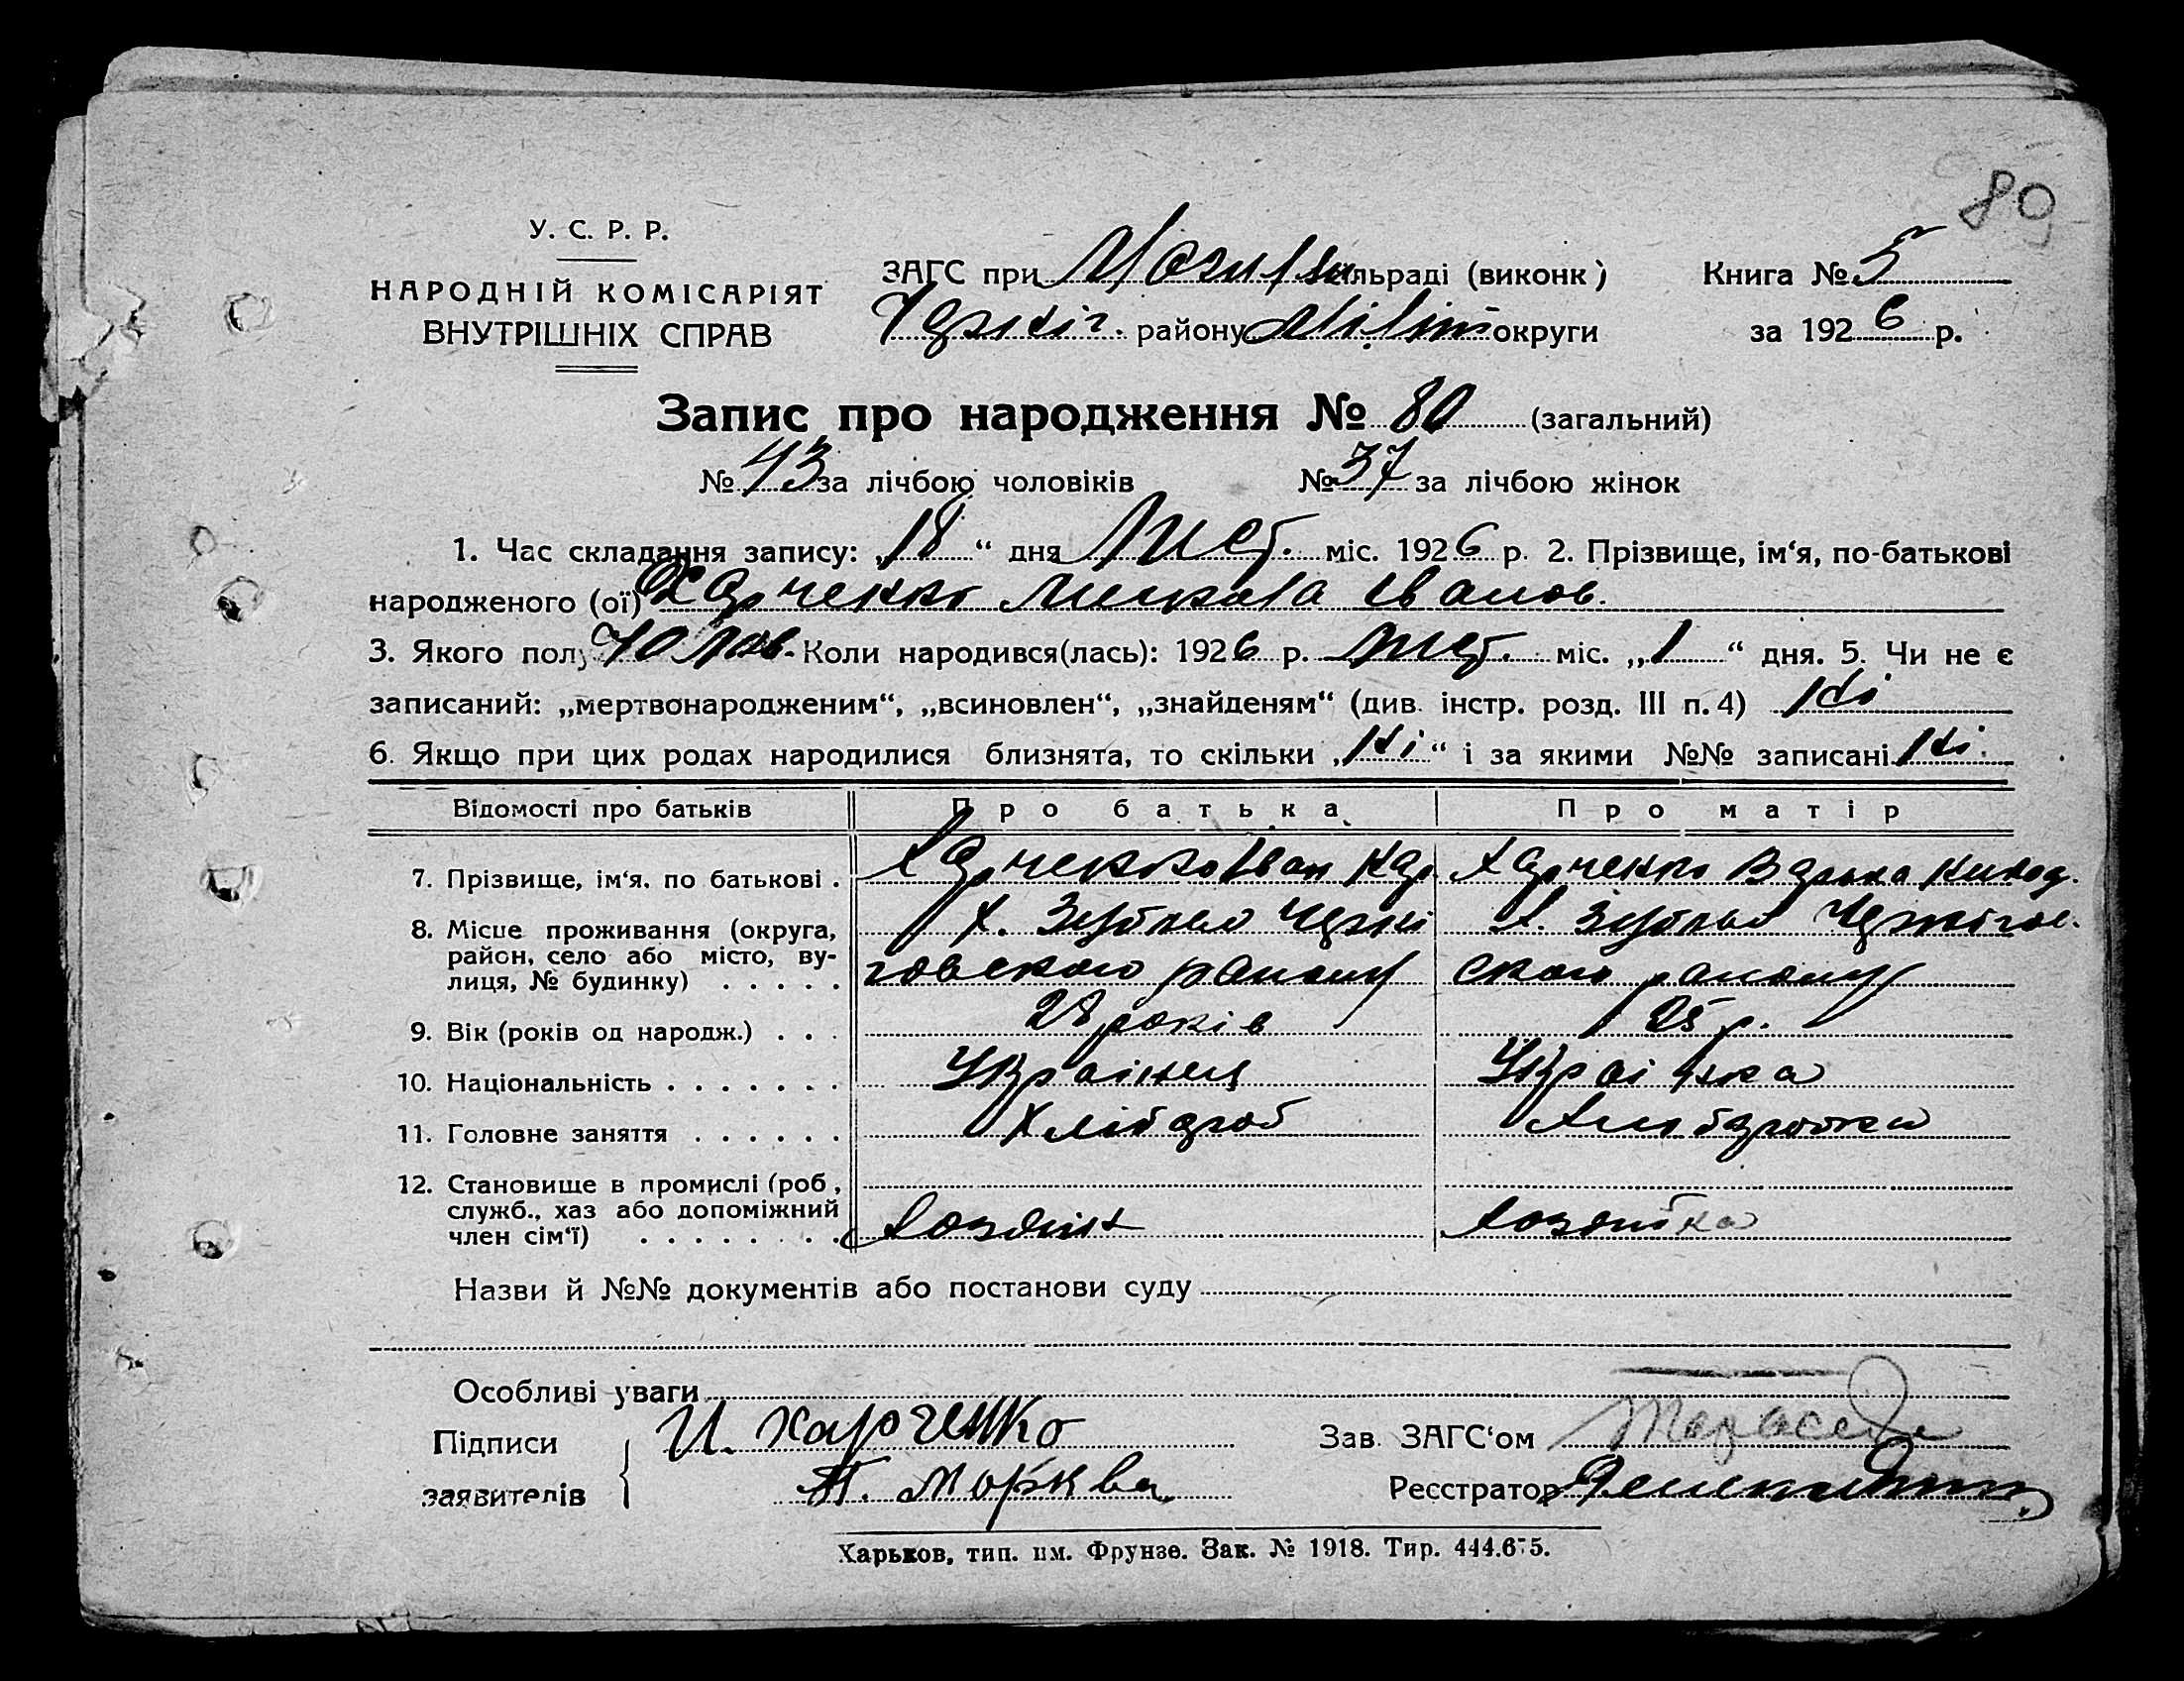 89
У. С. Р. Р.
НАРОДНІЙ КОМІСАРІЯТ
ВНУТРІШНІХ СПРАВ
ЗАГС при льраді (виконк)
району округи
Книга № 5
за 1926 р.
Запис про народження № 80 (загальний)
№ 43 за лічбою чоловіків № 37 за лічбою жінок
1. Час складання запису: „18“ дня Лист. міс. 1926 р. 2. Прізвище, ім‘я, по-батькові
народженого (ої) Харченко Микола Іванов.
3. Якого полу Чолов. Коли народився(лась): 1926 р. Лист. міс. „1“ дня. 5. Чи не є
записаний: „мертвонародженим“, „всиновлен“, „знайденям“ (див. інстр. розд. III п. 4) Ні
6. Якщо при цих родах народилися близнята, то скільки „Ні“ і за якими №№ записані Ні.
Відомості про батьків Про батька Про матір
7. Прізвище, ім‘я, по батькові . Харченко Іван Кар. Харченко Варька
8. Місце проживання (округа, Х. Черні Х. Чернігов.
район, село або місто, ву- говского району ского району
лиця, № будинку) . . . . .
9. Вік (років од народж.) . . . 28 років 25 р.
10. Національність . . . . . . . Українец Українка
11. Головне заняття . . . . . . Хлібороб
12. Становище в промислі (роб.,
служб., хаз або допоміжний
член сім‘ї) . . . . . . . . Хозяїн Хозяйка
Назви й №№ документів або постанови суду
Особливі уваги
Підписи И. Харченко Зав. ЗАГС‘ом
заявителів П. Морква Реєстратор
Харьков, тип. им. Фрунзе. Зак. № 1918. Тир. 444.675.